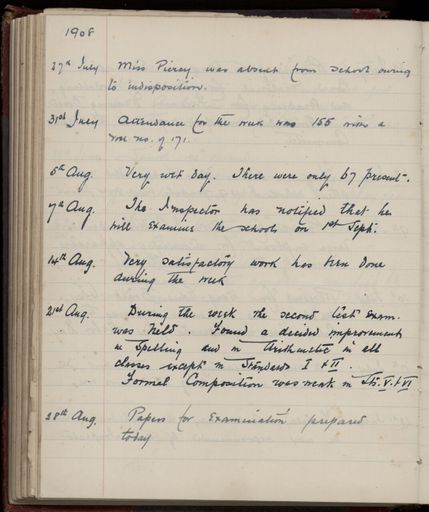 1908
27th July Miss Piercy was absent from school owing
to indisposition.
31st July Attendance for the week was 155 with a
roll no. of 171.
5th Aug. Very wet day. There were only 67 present.
7th Aug. The Inspector has notified that he
will examine the schools on 1st Sept.
14th Aug. Very satisfactory work has been done
during the week
21st Aug. During the week the second test exam.
was held. Found a decided improvement
in Spelling and in Arithmetic in all
classes except in Standards I & II.
Formal Composition was weak in Sts. V. & VI
28th Aug. Papers for Examination prepared
today